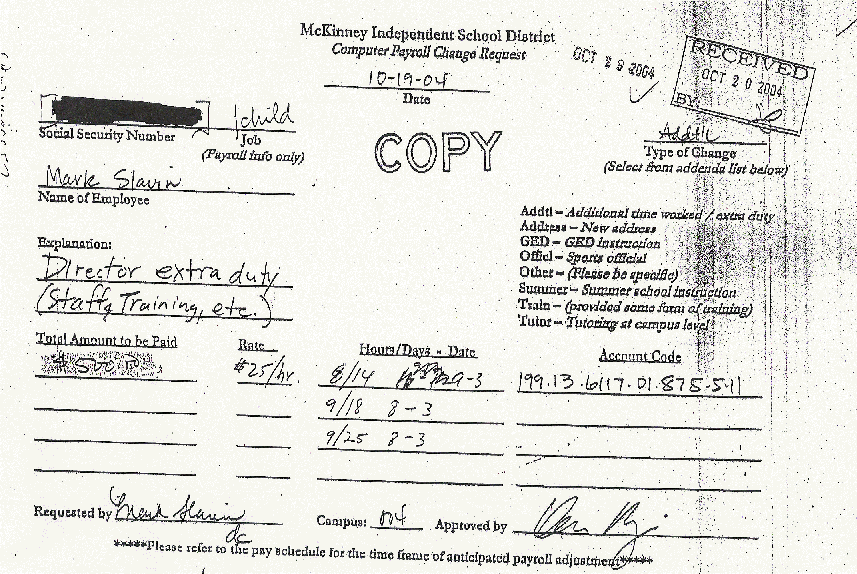 McKinney Independent School District
Computer Payroll Change Request
OCT 29 2004
RECEIVED
OCT 20 2004
BY
10-19-04
Date
child
Social Security Number
Job
(Payroll info only)
COPY
Addtl
Type of Change
(Select from addenda list below)
Mark Slavin
Name of Employee
Addtl – Additional time worked / extra duty
Address – New address
GED – GED instruction
Offcl – Sports official
Other – (Please be specific)
Summer – Summer school instruction
Train – (provided some form of training)
Tutor – Tutoring at campus level
Explanation:
Director extra duty
(Staffg Training, etc.)
Total Amount to be Paid
Rate
Hours/Days - Date
Account Code
$25/hr.
8/14 9-3
199.13.6117.01.875-5-11
9/18 8-3
9/25 8-3
Requested by Mark Slavin
Campus: 004
Approved by
dc
*****Please refer to the pay schedule for the time frame of anticipated payroll adjustment*****